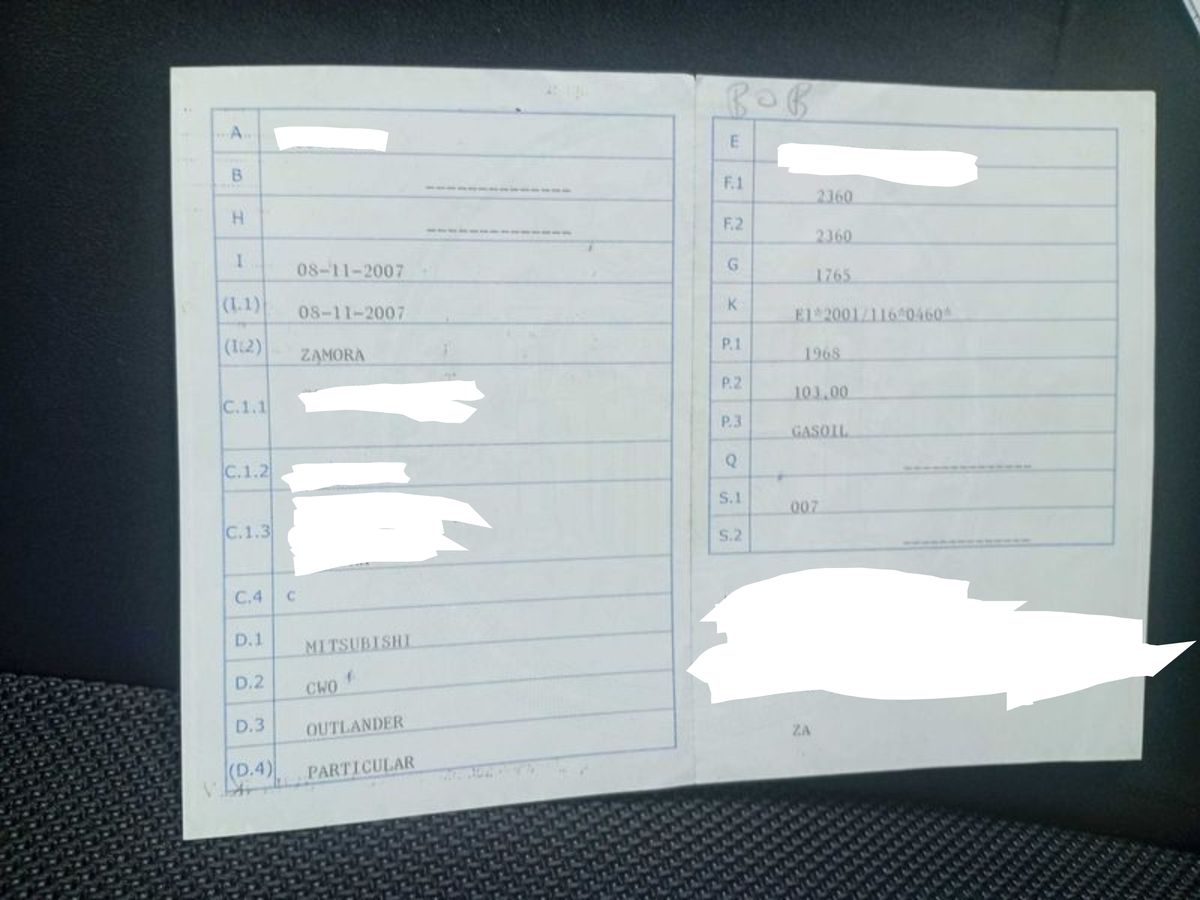 A
B --------------
H --------------
I 08-11-2007
(I.1) 08-11-2007
(I.2) ZAMORA
C.1.1
C.1.2
C.1.3
C.4 C
D.1 MITSUBISHI
D.2 CWO
D.3 OUTLANDER
(D.4) PARTICULAR
BOB
E
F.1 2360
F.2 2360
G 1765
K E1*2001/116*0460*
P.1 1968
P.2 103,00
P.3 GASOIL
Q --------------
S.1 007
S.2 --------------
ZA